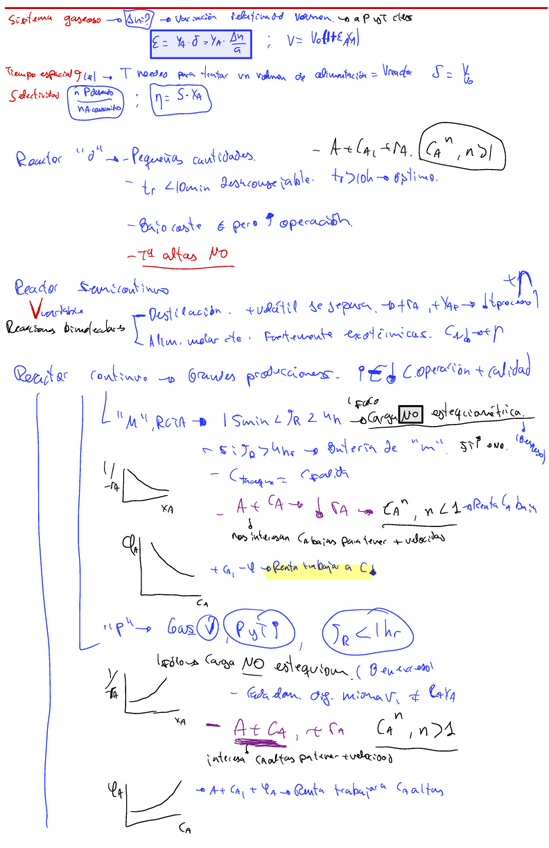 Sistema gaseoso → ¿Δn? → variación relativa de volumen → a P y T ctes
ε = y_A · δ = y_A · Δn/a ; V = V₀(1+εX_A)
Tiempo espacial → T necesario para tratar un volumen de alimentación = V reactor = V/v₀
Selectividad n P deseado / n A consumido ; η = S · X_A
Reactor "d" → - Pequeñas cantidades.
- A + C_A, + r_A. C_A^n, n>1
- t_r < 10min desaconsejable. t_r > 10h → óptimo.
- Bajo coste € pero ↑ operación.
- Tª altas NO
Reactor Semicontinuo
V variable
Reacciones bimoleculares
Destilación. + volátil se separa. → + r_A, + X_AF → ↓ t proceso
+η
Alim. molar cte. Fuertemente exotérmicas. C_A↓ → + η
Reactor continuo → Grandes producciones. ↑ € ↓ C operación + calidad
"M", RCTA → 15min < J_R < 4h → Carga NO estequiométrica.
- Si J_R > 4hr → Batería de "m".
(B en exceso)
- C tanque = C salida
1/-r_A
X_A
- A + C_A → ↓ r_A → C_A^n, n<1 → Renta C_A baja
nos interesan C_A bajas para tener + velocidad
φ_A
C_A
+ C_A, - φ → Renta trabajar a C↓
"P" → Gas V, P y T ↑, J_R < 1hr
Carga NO estequiom. (B en exceso)
1/-r_A
X_A
- Cada dom. org. misma v, ≠ C_A y X_A
- A + C_A, + r_A C_A^n, n>1
interesa C_A altas pa tener + velocidad
φ_A
C_A
→ A + C_A, + φ_A → Renta trabajar a C_A altas